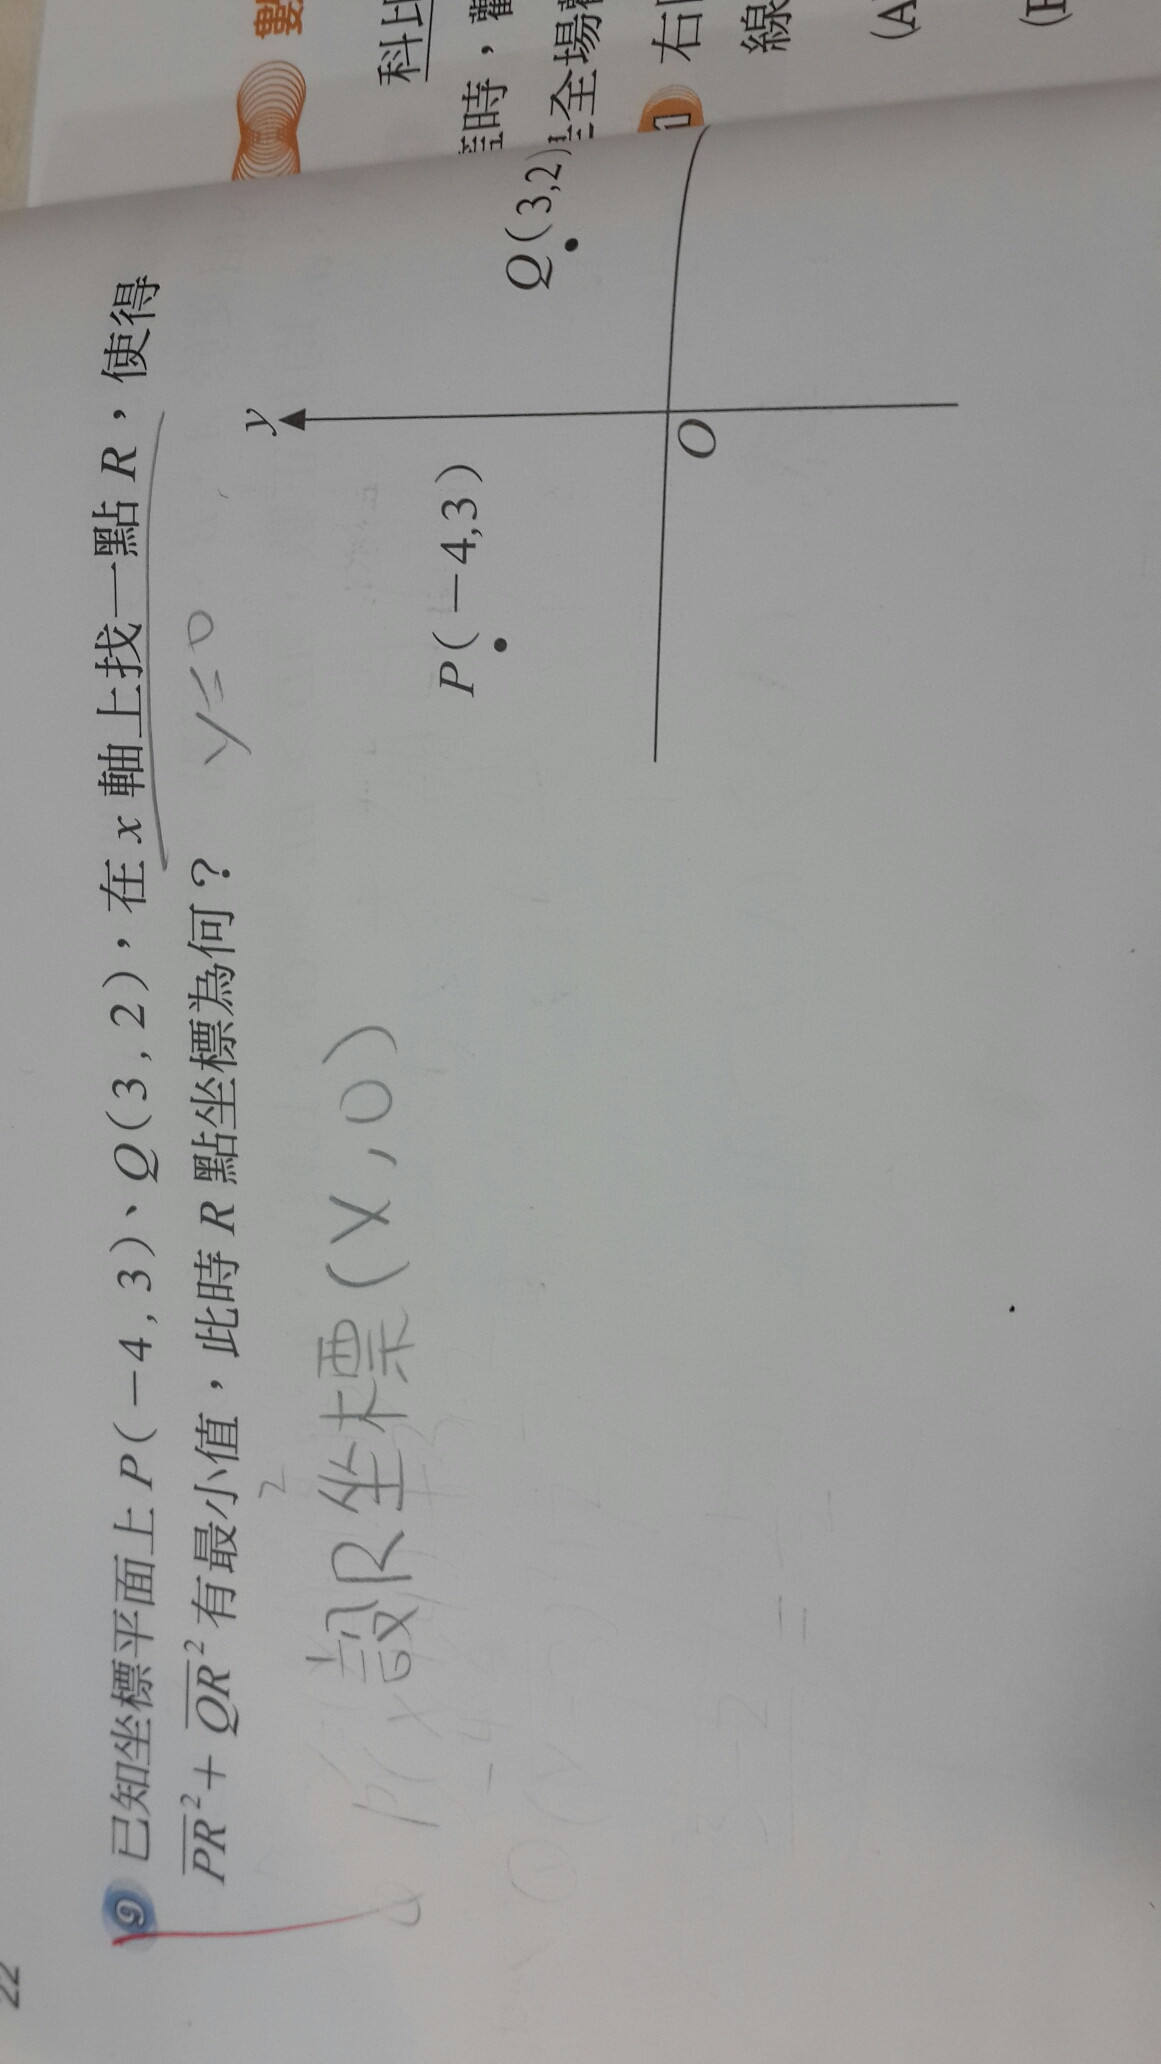 22
9 已知坐標平面上 P(-4,3)、Q(3,2),在 x 軸上找一點 R,使得
PR²+QR² 有最小值,此時 R 點坐標為何?
y≤0
設R坐標(x,0)
y
P(-4,3)
Q(3,2)
O
數
科比
時,觀
全場
1 右
線
(A